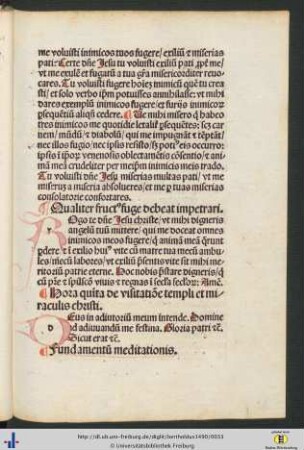 me voluisti inimicos tuos fugere / exiliũ ⁊ miserias
pati: Certe dñe Jesu tu voluisti exiliũ pati ꝓpt me /
vt me exulẽ et fugatũ a tua gr̃a misericorditer reuo
cares. Tu voluisti fugere hoĩes inimicũ quẽ tu crea
sti / et solo verbo ip̃m potuisses annihilasse: vt mihi
dares exemplũ inimicos fugere / et furijs inimicoꝝ
ꝑsequẽtiũ aliqñ cedere. Ve mihi misero q̃ habeo
tres inimicos me quotidie letaliť ꝑsequẽtes: scꝫ car
nem / mũdũ / ⁊ diabolũ / qui me impugnãt ⁊ tẽptãt /
nec illos fugio / nec ipsis resisto / sꝫ poti⁹ eis occurro:
ipsis ĩ ipsoꝝ venenosis oblectamẽtis cõsentio / et ani
mã meã crudeliter per meip̃m inimicis meis trado.
Tu voluisti dñe Jesu miserias multas pati / vt me
miseruȝ a miseria absolueres / et me ꝑ tuas miserias
consolatorie confortares.
Qualiter fruct⁹ fuge debeat impetrari.
Rogo te dñe Jesu christe: vt mihi digneris
angelũ tuũ mittere / qui me doceat omnes
inimicos meos fugere / q̃ animã meã q̃runt
ꝑdere ⁊ ĩ exilio hui⁹ vite cũ matre tua mecũ ambu
les / meiqȝ labores / vt exiliũ p̃sentis vite sit mihi me
ritoriũ patrie eterne. Hoc nobis p̃stare digneris / q̃
cũ pr̃e ⁊ sp̃usctõ viuis ⁊ regnas ĩ secl̃a seclorꝝ: Amẽ.
Hora quĩta de visitatiõe templi et mi
raculis christi.
Deus in adiutoriũ meum intende. Domine
ad adiuuandũ me festina. Gloria patri ⁊c̃.
Sicut erat ⁊c̃.
Fundamentũ meditationis.
http://dl.ub.uni-freiburg.de/diglit/bertholdus1490/0033
© Universitätsbibliothek Freiburg